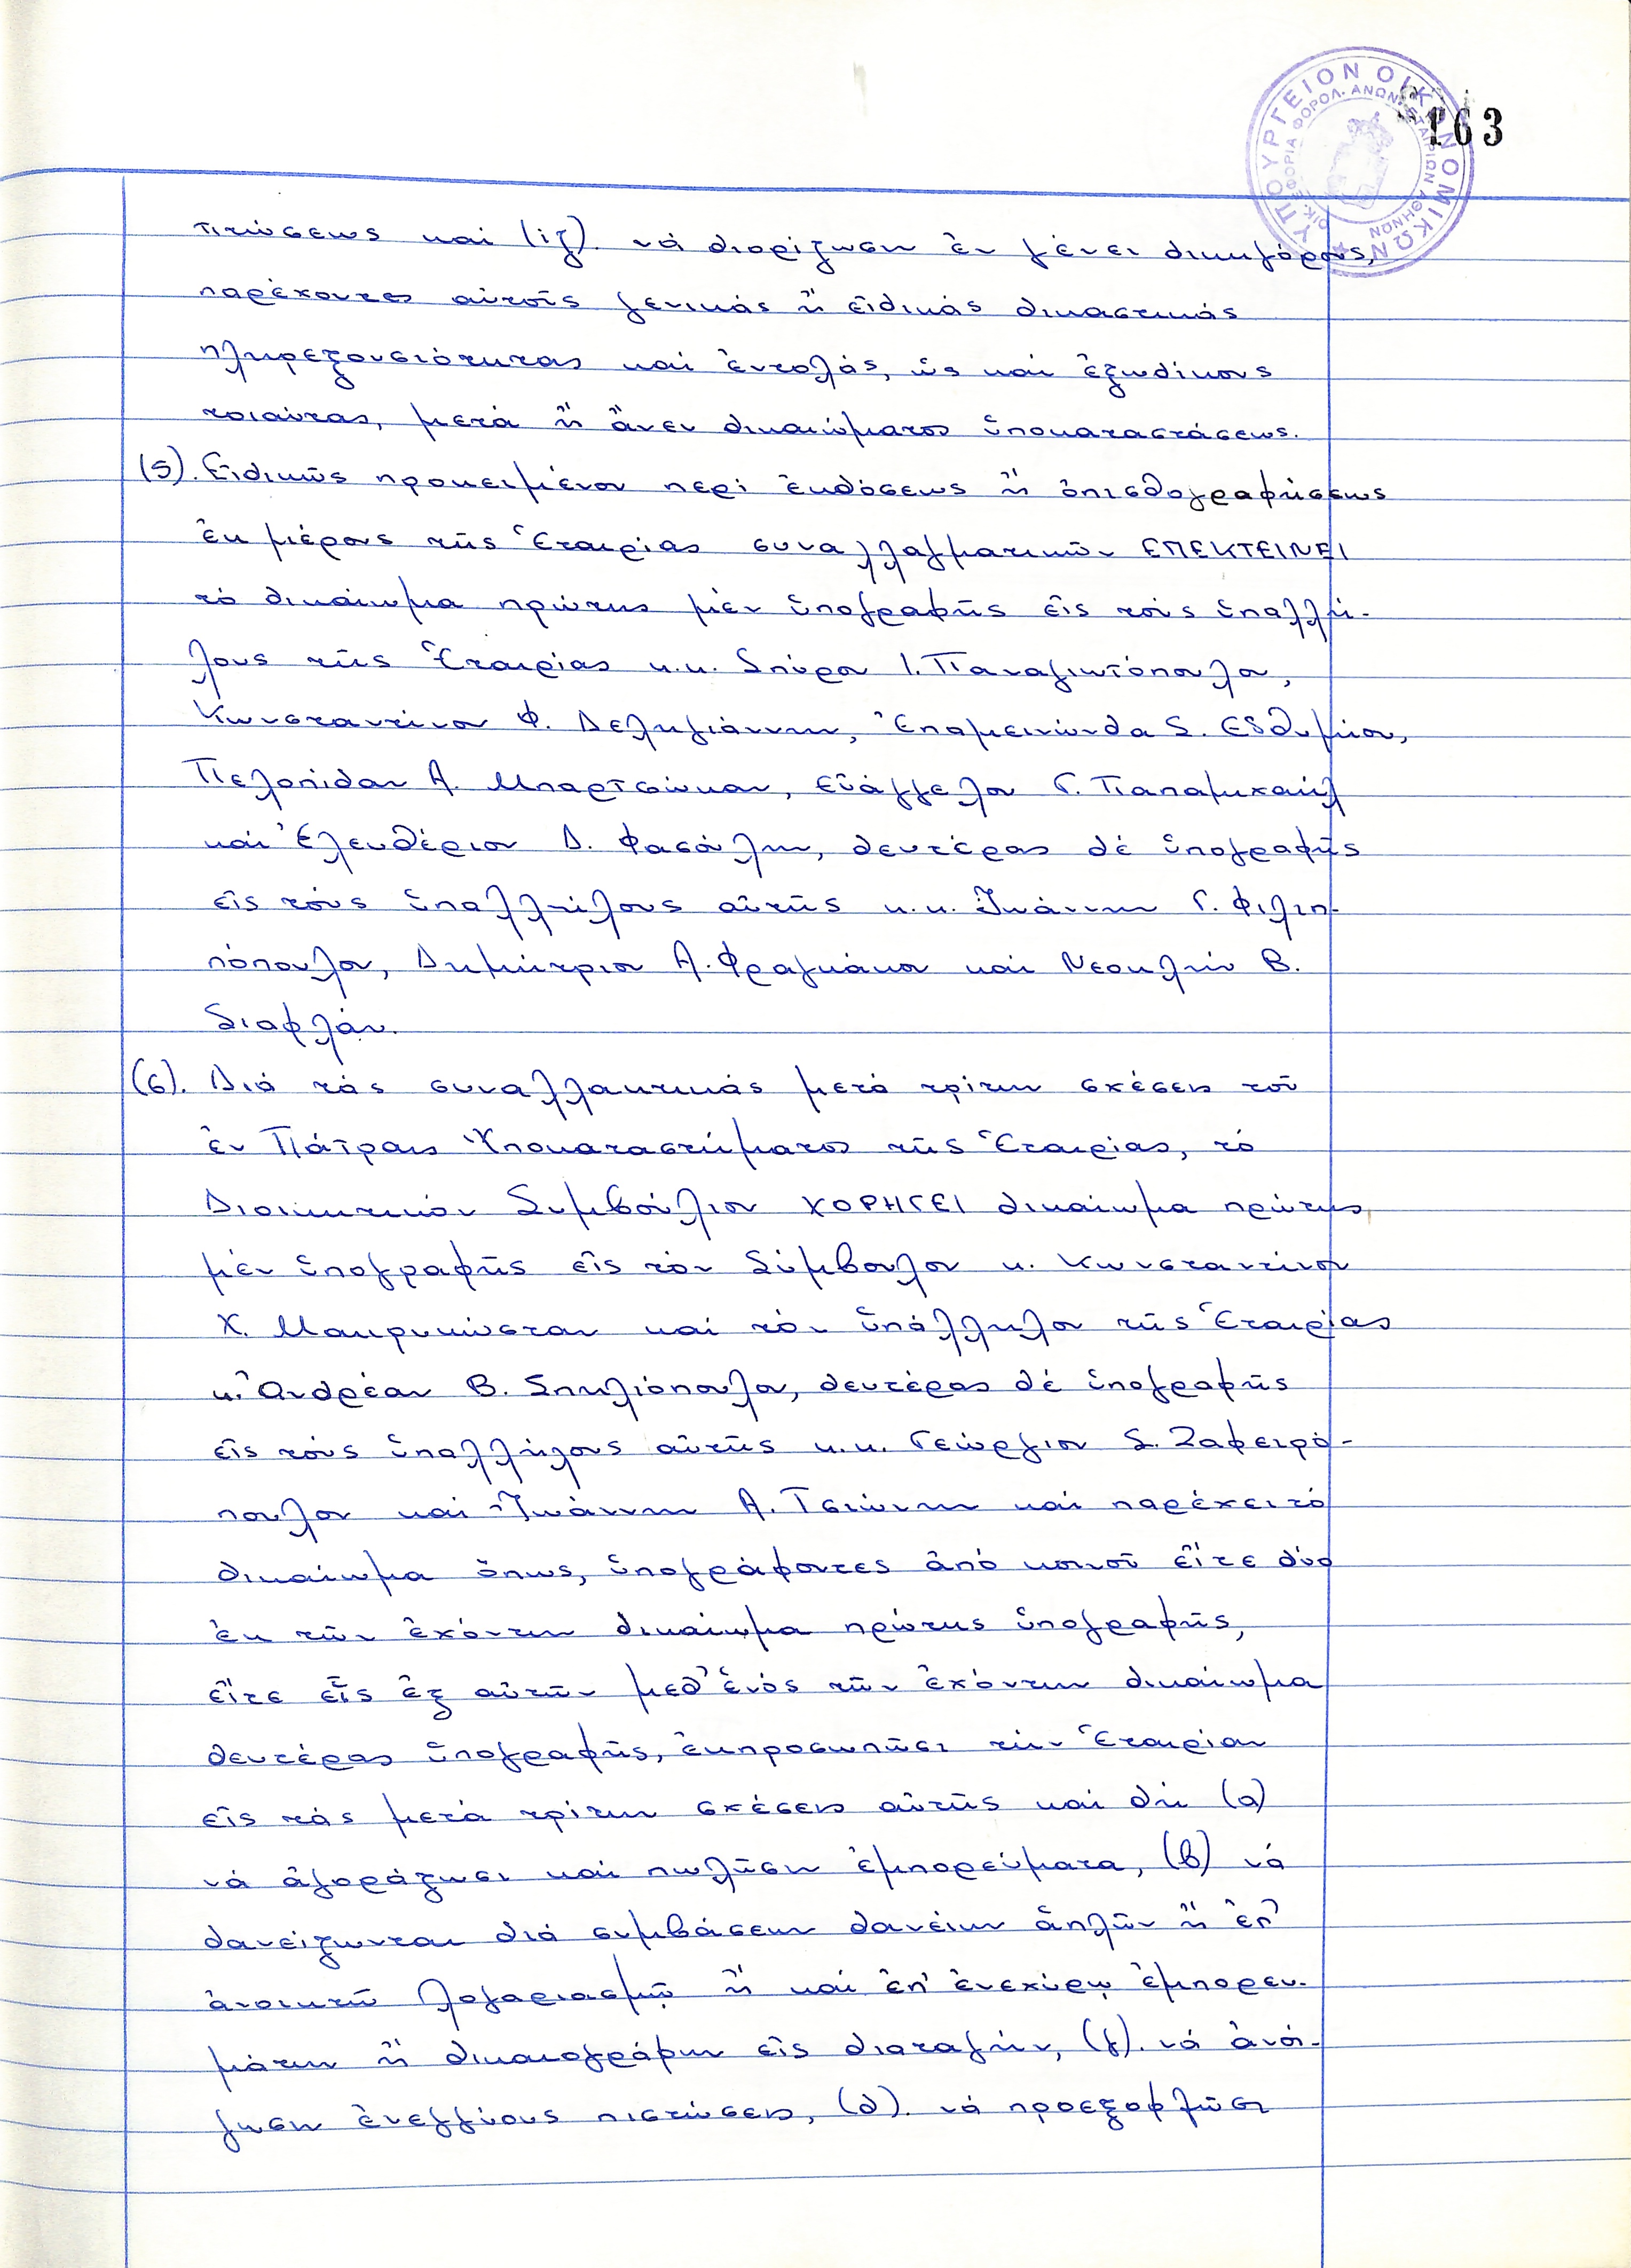 163
ΥΠΟΥΡΓΕΙΟΝ ΟΙΚΟΝΟΜΙΚΩΝ
ΟΙΚ. ΕΦΟΡΙΑ ΦΟΡΟΛ. ΑΝΩΝ. ΕΤΑΙΡΙΩΝ ΑΘΗΝΩΝ
πτώσεως καί (ιζ). νά διορίζωσιν ἐν γένει δικηγόρους,
παρέχοντες αὐτοῖς γενικάς ἤ εἰδικάς δικαστικάς
πληρεξουσιότητας καί ἐντολάς, ὡς καί ἐξωδίκους
τοιαύτας, μετά ἤ ἄνευ δικαιώματος ὑποκαταστάσεως.
(5). Εἰδικῶς προκειμένου περί ἐκδόσεως ἤ ὀπισθογραφήσεως
ἐκ μέρους τῆς Ἑταιρίας συναλλαγματικῶν ΕΠΕΚΤΕΙΝΕΙ
τό δικαίωμα πρώτης μέν ὑπογραφῆς εἰς τούς ὑπαλλή-
λους τῆς Ἑταιρίας κ.κ. Σπύρον Ι. Παναγιωτόπουλον,
Κωνσταντίνον Φ. Δεληγιάννην, Ἐπαμεινώνδα Σ. Εὐθυμίου,
Πελοπίδαν Α. Μπαρτσώκαν, Εὐάγγελον Γ. Παπαμιχαήλ
καί Ἐλευθέριον Δ. Φασούλην, δευτέρας δέ ὑπογραφῆς
εἰς τούς ὑπαλλήλους αὐτῆς κ.κ. Ἰωάννην Γ. Φιλιπ-
πόπουλον, Δημήτριον Α. Φραγκάκον καί Νεοκλήν Β.
Σιαφλάν.
(6). Διά τάς συναλλακτικάς μετά τρίτων σχέσεις τοῦ
ἐν Πάτραις Ὑποκαταστήματος τῆς Ἑταιρίας, τό
Διοικητικόν Συμβούλιον ΧΟΡΗΓΕΙ δικαίωμα πρώτης
μέν ὑπογραφῆς εἰς τόν Σύμβουλον κ. Κωνσταντίνον
Χ. Μακρυκώσταν καί τόν ὑπάλληλον τῆς Ἑταιρίας
κ. Ἀνδρέαν Β. Σπηλιόπουλον, δευτέρας δέ ὑπογραφῆς
εἰς τούς ὑπαλλήλους αὐτῆς κ.κ. Γεώργιον Σ. Ζαφειρό-
πουλον καί Ἰωάννην Α. Τσιώνην καί παρέχει τό
δικαίωμα ὅπως, ὑπογράφοντες ἀπό κοινοῦ εἴτε δύο
ἐκ τῶν ἐχόντων δικαίωμα πρώτης ὑπογραφῆς,
εἴτε εἷς ἐξ αὐτῶν μεθ' ἑνός τῶν ἐχόντων δικαίωμα
δευτέρας ὑπογραφῆς, ἐκπροσωπῶσι τήν Ἑταιρίαν
εἰς τάς μετά τρίτων σχέσεις αὐτῆς καί δή (α)
νά ἀγοράζωσι καί πωλῶσιν ἐμπορεύματα, (β) νά
δανείζωνται διά συμβάσεων δανείων ἁπλῶν ἤ ἐπ'
ἀνοικτῷ λογαριασμῷ ἤ καί ἐπ' ἐνεχύρῳ ἐμπορευ-
μάτων ἤ δικαιογράφων εἰς διαταγήν, (γ). νά ἀνοί-
γωσιν ἐνεγγύους πιστώσεις, (δ). νά προεξοφλῶσι